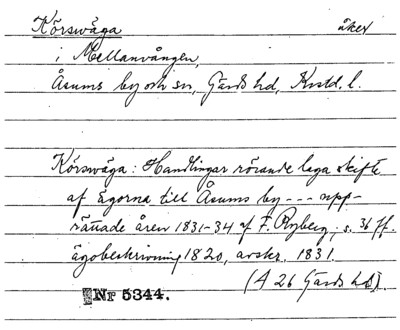 Körsväga åker
i Mellanvången,
Åsums by och sn, Gärds hd, Krstd. l.
Körsväga: Handlingar rörande laga skifte
af Egorna till Åsums by --- upp-
rättade åren 1831-34 af F. Ryberg, s. 36 ff.
ägobeskrivning 1820, avskr. 1831.
(A 26 Gärds hd).
Nr 5344.